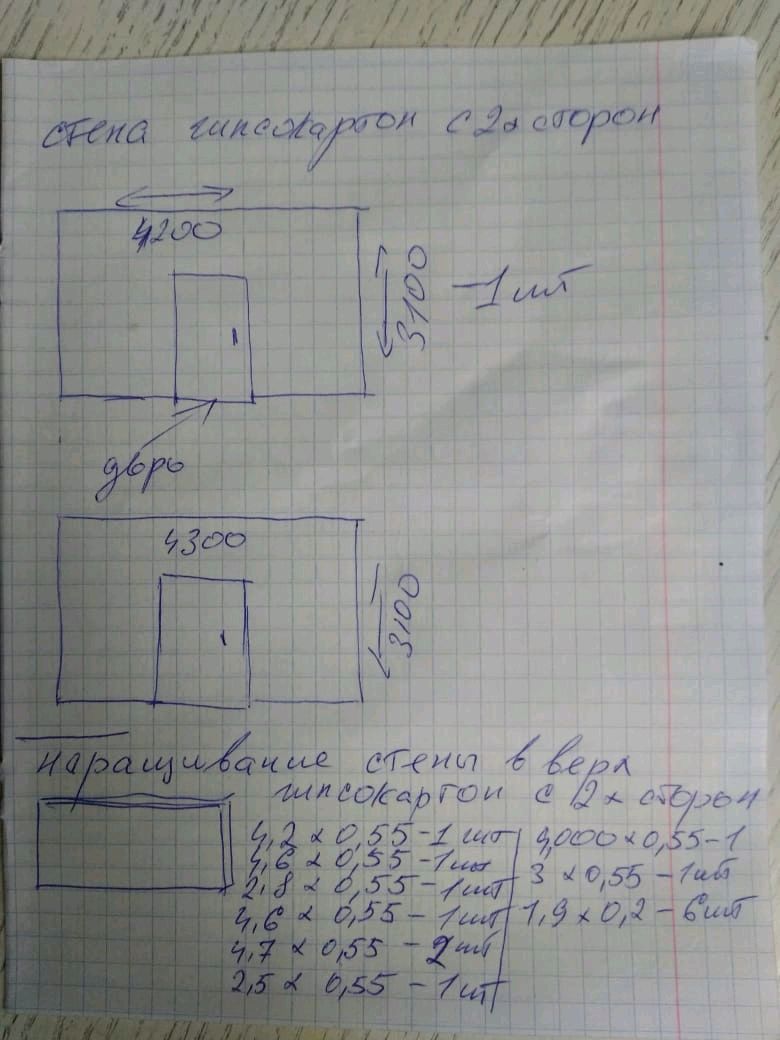 стена гипсокартон с 2х сторон
4200
3100
-1шт
дверь
4300
3100
наращивание стены в верх
гипсокартон с 2х сторон
4,2 х 0,55 - 1 шт
4,6 х 0,55 - 1шт
2,8 х 0,55 - 1шт
4,6 х 0,55 - 1шт
4,7 х 0,55 - 2шт
2,5 х 0,55 - 1шт
4,000 х 0,55 - 1
3 х 0,55 - 1шт
1,9 х 0,2 - 6шт